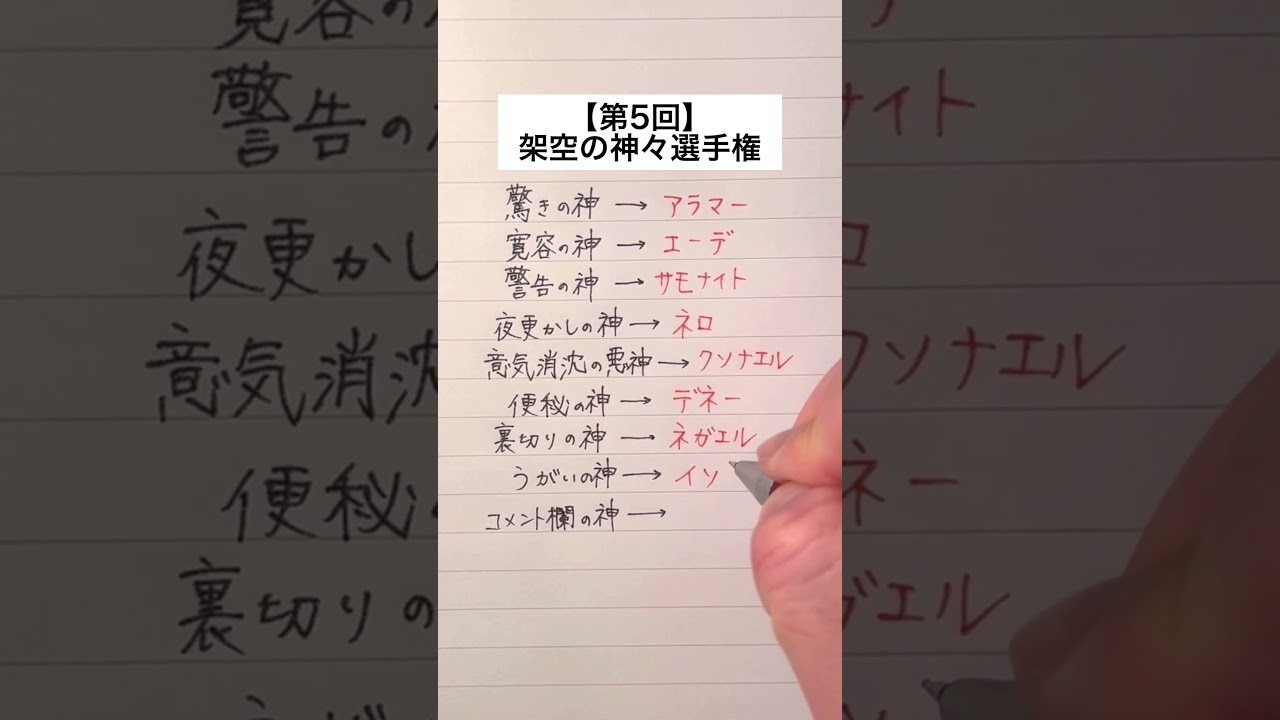 【第5回】
架空の神々選手権
驚きの神 → アラマー
寛容の神 → エーデ
警告の神 → サモナイト
夜更かしの神 → ネロ
意気消沈の悪神 → クソナエル
便秘の神 → デネー
裏切りの神 → ネガエル
うがいの神 → イソ
コメント欄の神 →